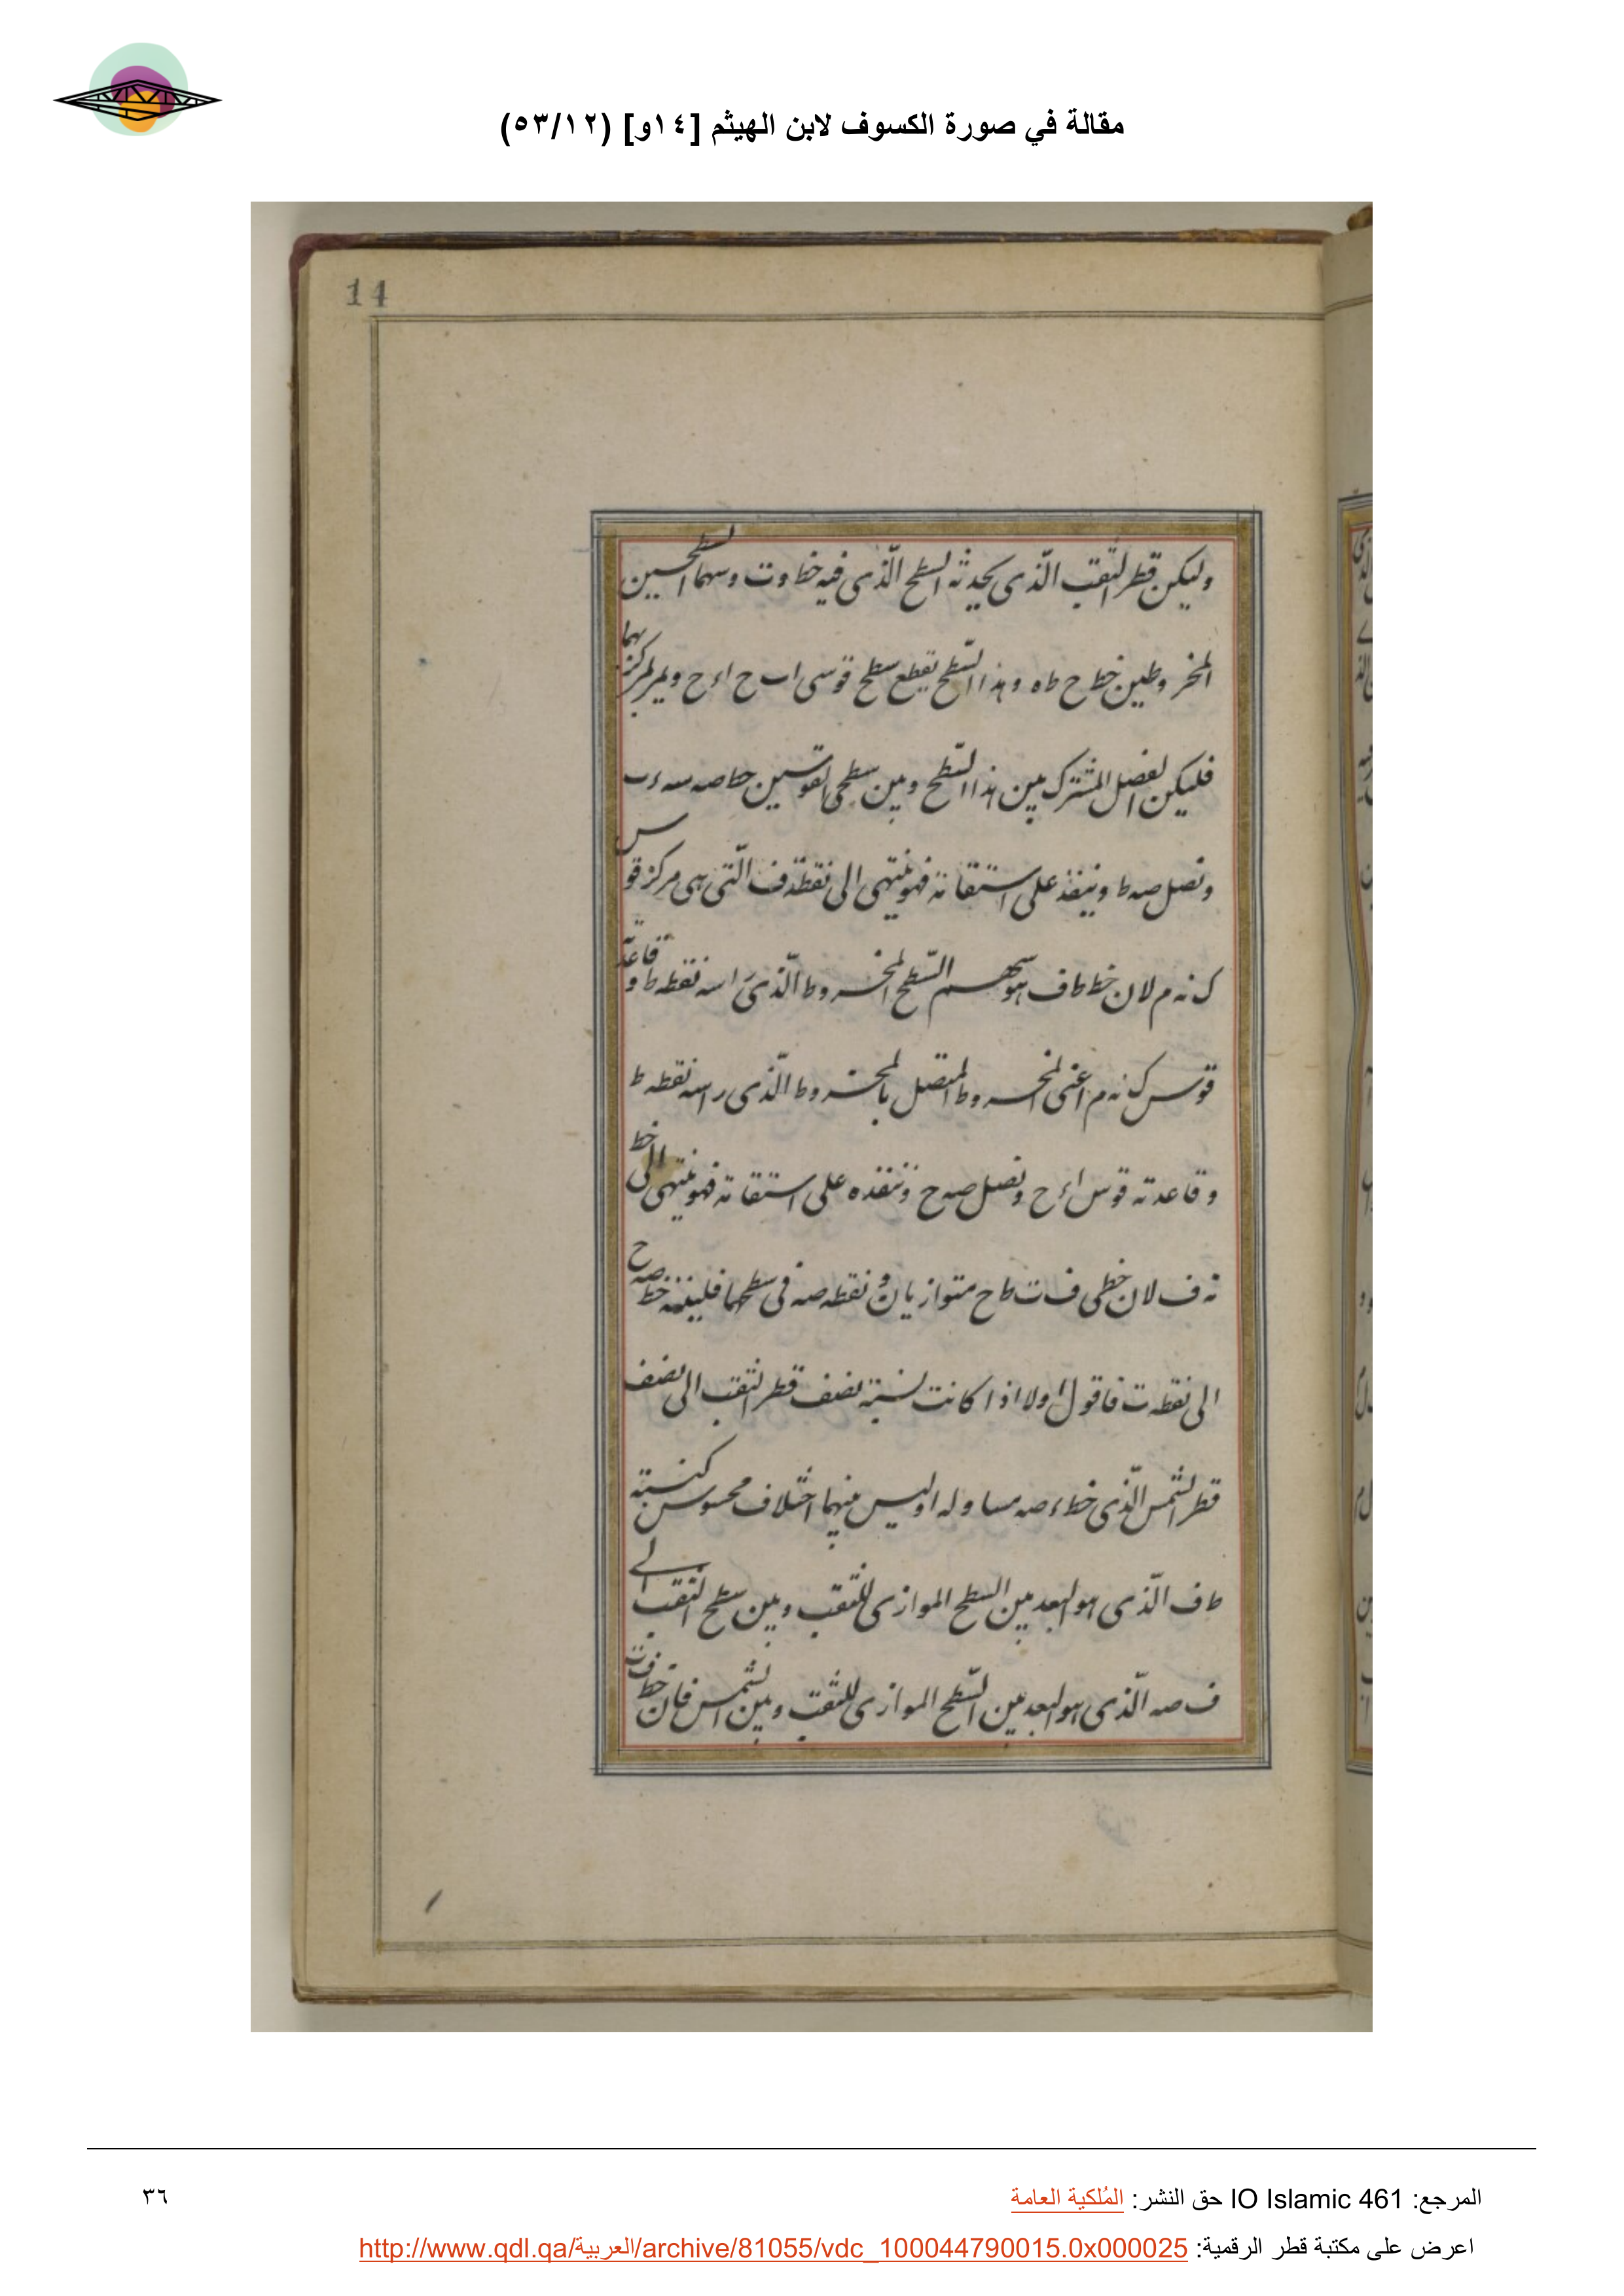 مقالة في صورة الكسوف لابن الهيثم [١٤و] (٥٣/١٢)
14
وليكن قطر الثقب الّذى يحدثه السطح الّذى فيه خط وت وسهما السطحين
المخروطين خط ح ط ه وهذا السّطح يقطع سطح قوسى اب ح اء ح ويمر بمركزيهما
فليكن الفصل المشترك بين هذا السّطح وبين سطحى القوسين خط صه
ونصل صه ط وينفذ على استقامة فهو ينتهى الى نقطة ف الّتى هى مركز قوس
ك نه م لان خط ط ف هو سهم السّطح المخروط الّذى راسه نقطه ط وقاعدته
قوس ك نه م اعنى المخروط المتصل بالمخروط الّذى راسه نقطه ط
وقاعدته قوس اء ح ونصل صه ح وننفذه على استقامة فهو ينتهى الى خط
نه ف لان خطى ف ت ط ح متوازيان ونقطه صه فى سطحهما فلينته خط صه ح
الى نقطه ت فاقول اولا اذا كانت نسبة نصف قطر الثقب الى نصف
قطر الشمس الّذى خط ء صه مساو له او ليس بينهما اختلاف محسوس كنسبة
ط ف الّذى هو البعد بين السطح الموازى للثقب وبين سطح الثقب الى
ف صه الّذى هو البعد بين السّطح الموازى للثقب وبين الشمس فان خط ف ت
المرجع: IO Islamic 461 حق النشر: المُلكية العامة
٣٦
اعرض على مكتبة قطر الرقمية: http://www.qdl.qa/العربية/archive/81055/vdc_100044790015.0x000025